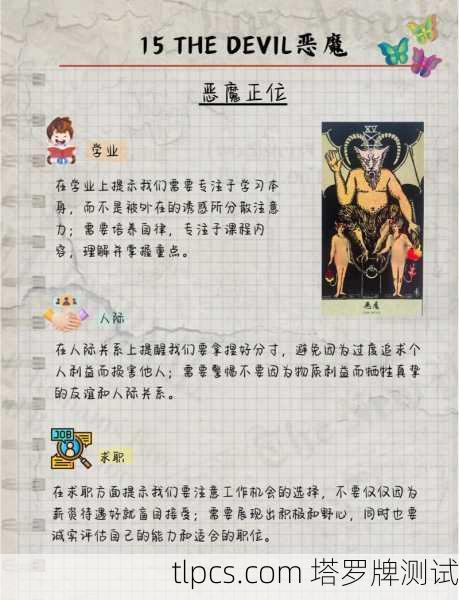 15 THE DEVIL恶魔
恶魔正位
学业
在学业上提示我们需要专注于学习本
身，而不是被外在的诱惑所分散注意
力；需要培养自律，专注于课程内
容，理解并掌握重点。
XV
恶魔
人际
在人际关系上提醒我们要拿捏好分寸，避免因为过度追求个
人利益而损害他人；需要警惕不要因为物质利益而牺牲真挚
的友谊和人际关系。
JOB
求职
在求职方面提示我们要注意工作机会的选择，不要仅仅因为
薪资待遇好就盲目接受；需要展现出积极和野心，同时也要
诚实评估自己的能力和适合的职位。
tlpcs.com 塔罗牌测试